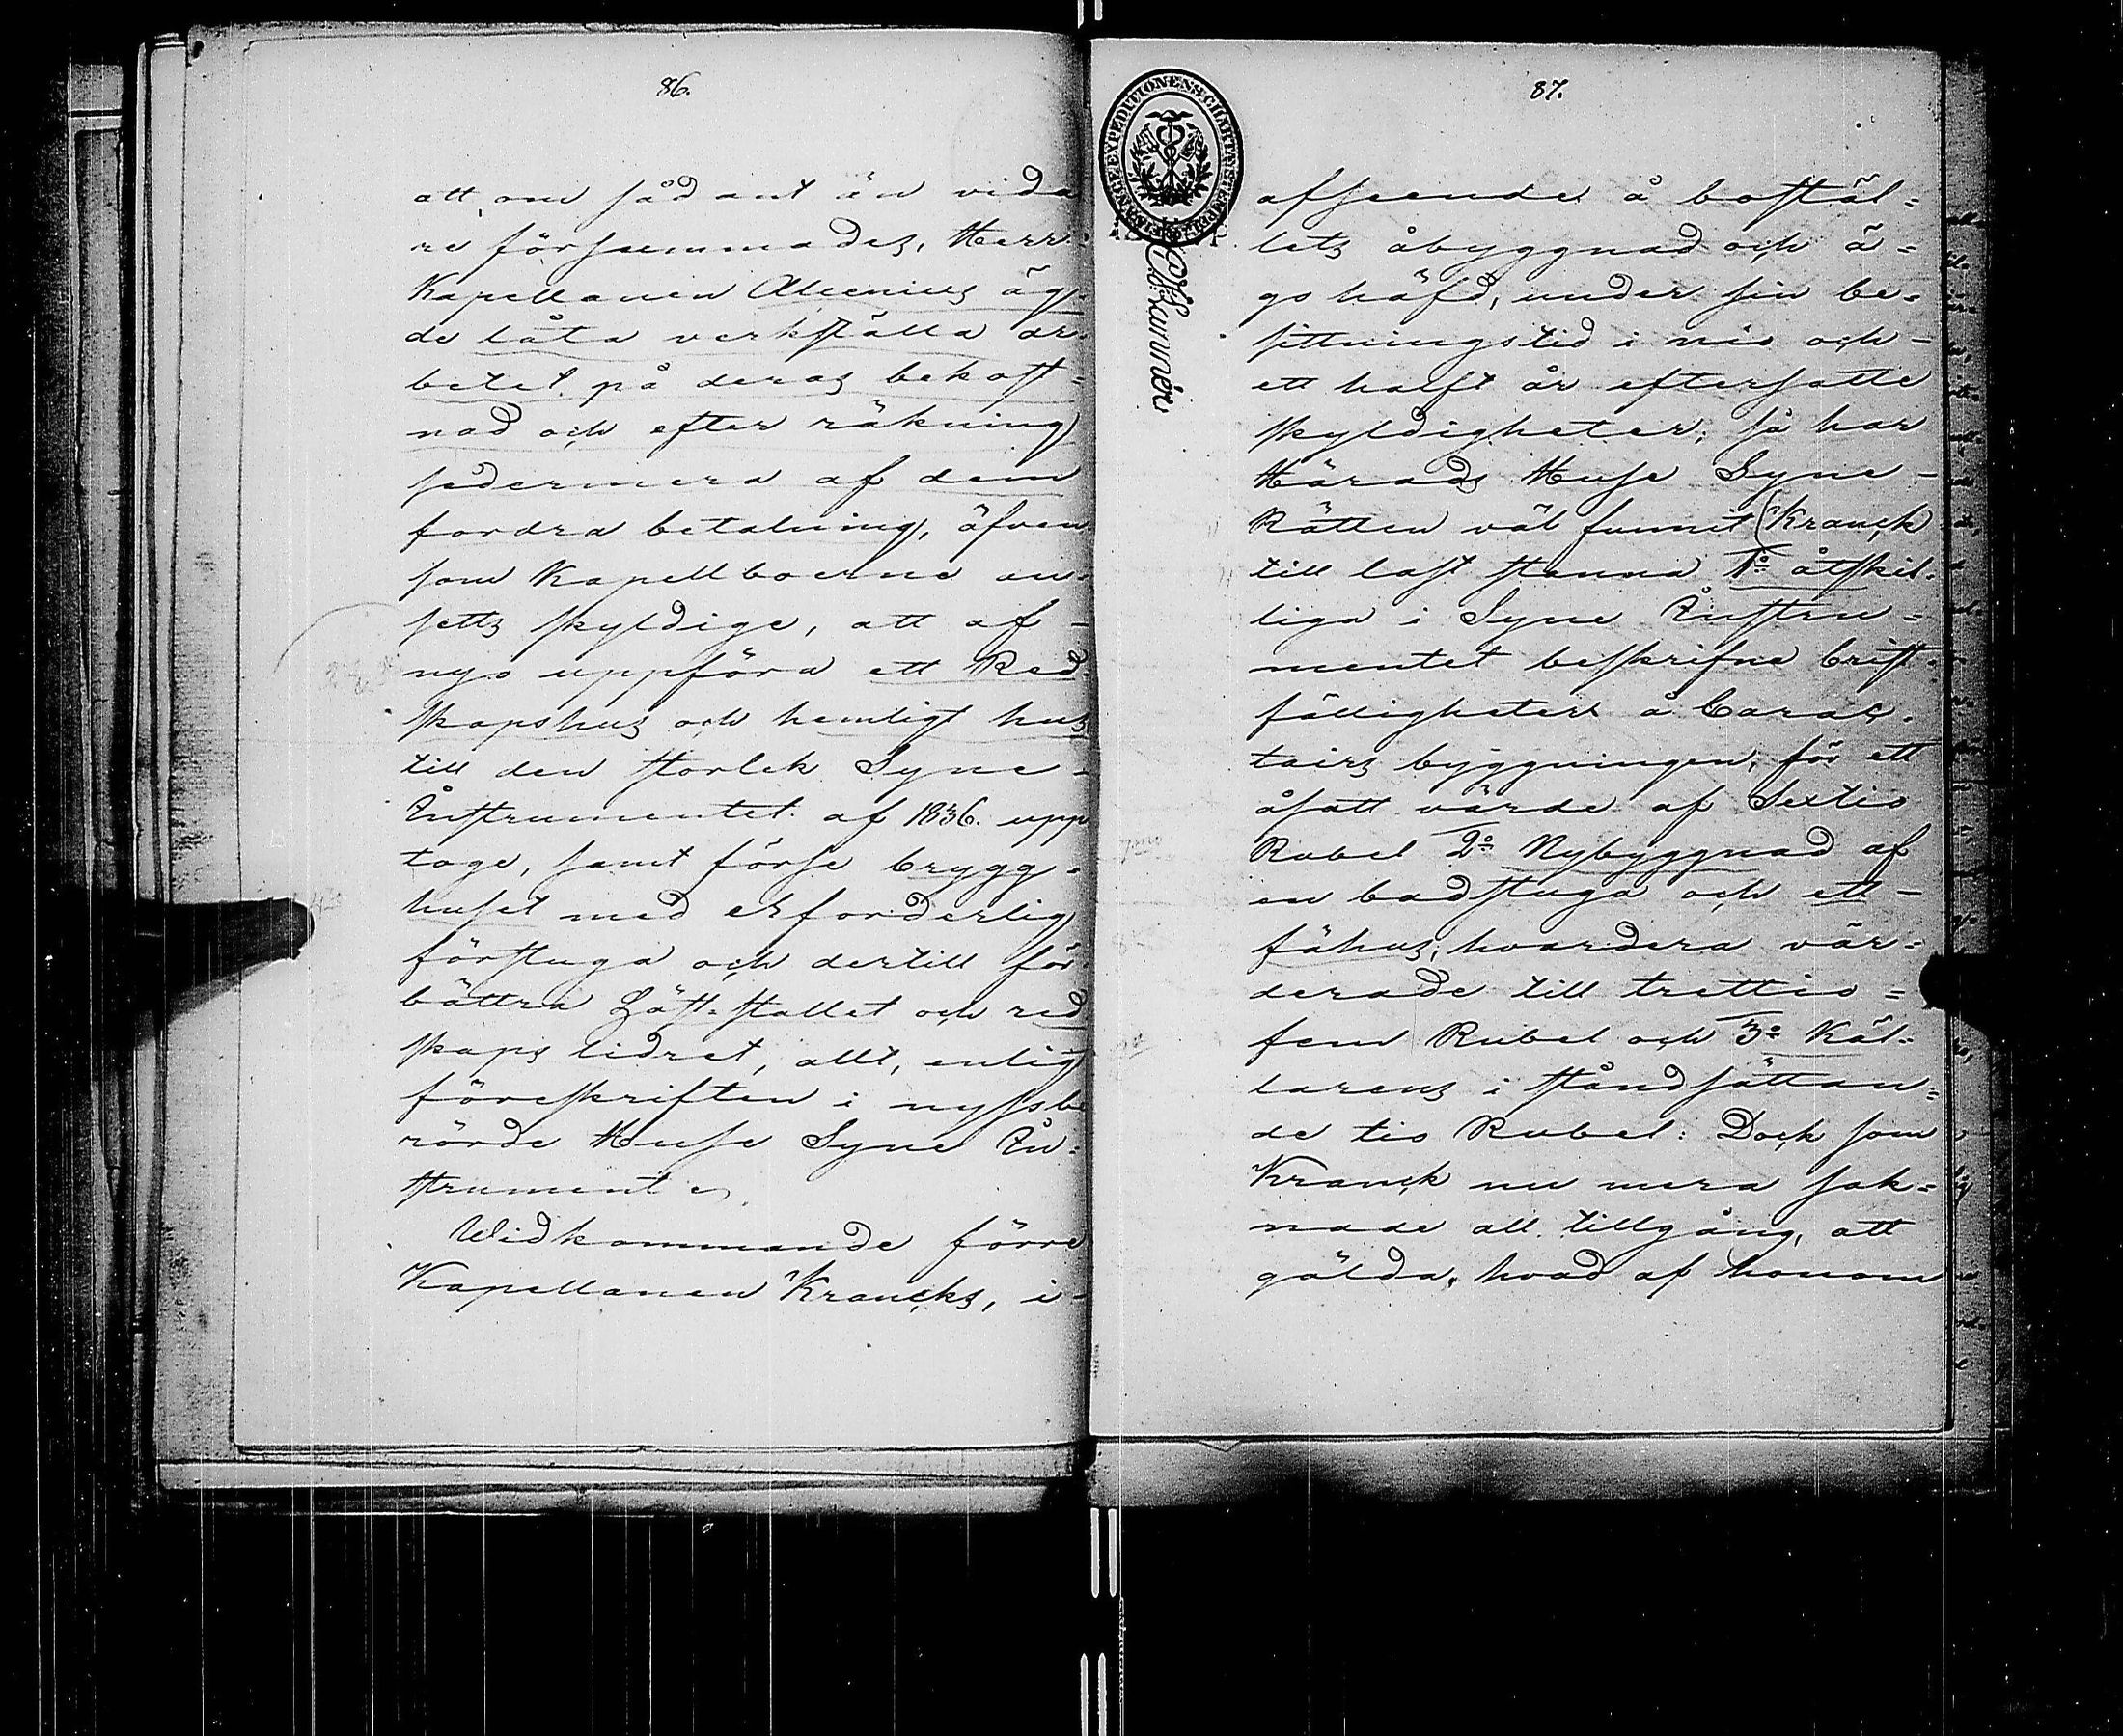 86.
att om sådant än vida
re försummades, Herr
Kapellanen Alcenius äg-
de låta verkställa ar-
betet på deras bekost=
nad och efter räkning
sedermera af dem
fordra betalning, äfven
som Kapellboerne an-
setts skyldige, att af-
nyo uppföra ett Red-
skapshus och hemligt hus
till den storlek Syne-
Instrumentet af 1836. upp
toge, samt förse brygg-
huset med erforderlig
förstuga och dertill för
bättra Häst-stallet och red
skaps lidret, allt, enligt
föreskriften i nyssbe
rörde Huse Syne In-
strument.
Widkommande förre
Kapellanen Krancks, i-
87.
afseende å bostäl=
lets åbyggnad och ä=
gs häfd, under sin be=
sittningstid i nio och-
ett halft år eftersatte
skyldigheter; så har
Härads Huse Syne-
Rätten väl funnit Kranck
till last stanna 1o åtskil-
liga i Syne Instru=
mentet beskrifne brist-
fälligheter å Carac-
tairs byggningen, för ett
åsatt värde af Sextio
Rubel 2o Nybyggnad af
en badstuga och ett-
fähus, hvardera vär-
derade till trettio=
fem Rubel och 3o Käl-
larens i ståndsättan-
de tio Rubel: Dock som
Kranck nu mera sak=
nade all tillgång, att
gälda, hvad af honom